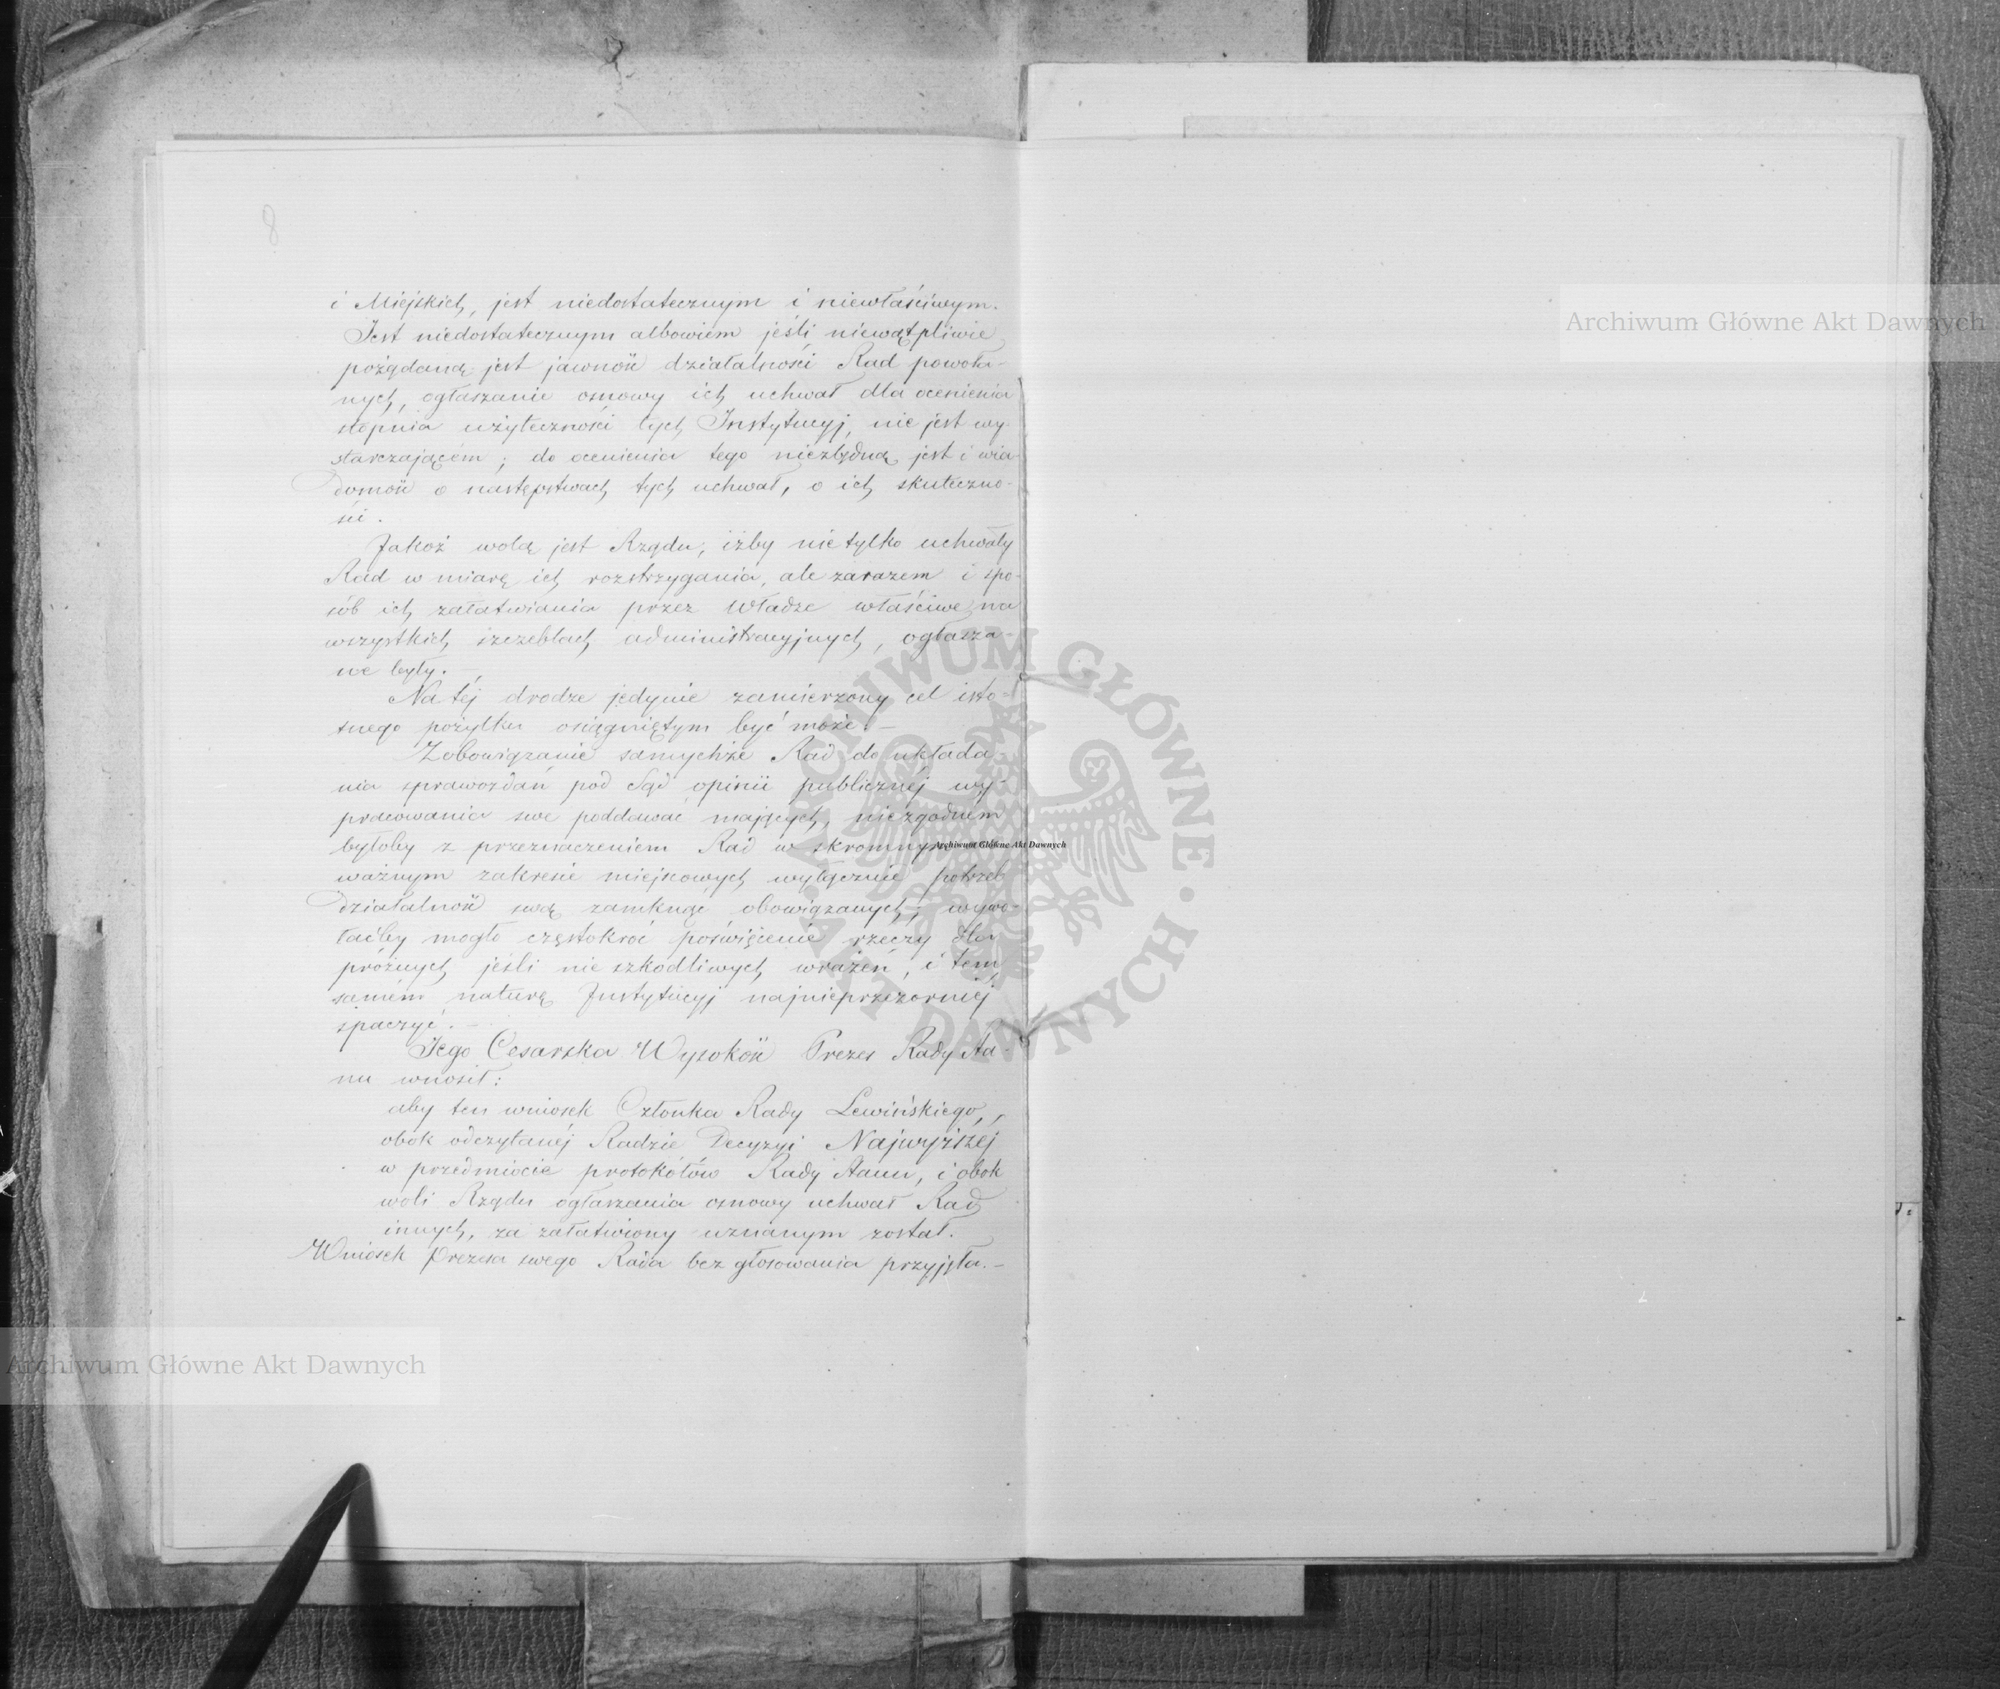 8
i Miejskich, jest niedostatecznym i niewłaściwym.
Jest niedostatecznym albowiem jeśli niewątpliwie
pożądaną jest jawność działalności Rad powoła-
nych, ogłaszanie osnowy ich uchwał dla ocenienia
stopnia użyteczności tych Instytucyj, nie jest wy-
starczającém; do ocenienia tego niezbędną jest i wia-
domość o następstwach tych uchwał, o ich skuteczno-
ści.
Jakoż wolą jest Rządu, iżby nie tylko uchwały
Rad w miarę ich rozstrzygania, ale zarazem i spo-
sób ich załatwiania przez Władze właściwe na
wszystkich szczeblach administracyjnych, ogłasza-
ne były. —
Na téj drodze jedynie zamierzony cel isto-
tnego pożytku osiągniętym być może. —
Zobowiązanie samychże Rad do układa-
nia sprawozdań pod Sąd opinii publicznéj wy-
pracowania swe poddawać mających, niezgodnem
byłoby z przeznaczeniem Rad w skromnym
ważnym zakresie miejscowych wyłącznie potrzeb
działalność swą zamknąć obowiązanych; wywo-
łaćby mogło częstokroć poświęcenie rzeczy dla
próżnych jeśli nie szkodliwych wrażeń, i tem
samém naturę Instytucyj najnieprzezorniéj
spaczyć. —
Jego Cesarska Wysokość Prezes Rady Sta-
nu wnosił:
aby ten wniosek Członka Rady Lewińskiego,
obok odczytanéj Radzie Decyzyi Najwyższéj
w przedmiocie protokółów Rady Stanu, i obok
woli Rządu ogłaszania osnowy uchwał Rad
innych, za załatwiony uznanym został.
Wniosek Prezesa swego Rada bez głosowania przyjęła. —
Archiwum Główne Akt Dawnych
Archiwum Główne Akt Dawnych
Archiwum Główne Akt Dawnych
ARCHIWUM GŁÓWNE · AKT DAWNYCH ·